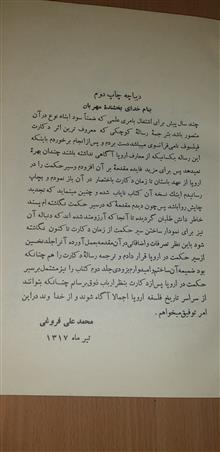 دیباچه چاپ دوم
بنام خدای بخشنده مهربان
چند سال پیش برای اشتغال بامری علمی که ضمناً سود ابناء نوع در آن
متصور باشد بترجمهٔ رسالهٔ کوچکی که معروف ترین اثر دکارت
فیلسوف نامی فرانسوی میباشد دست بردم و پس از انجام برخوردم باینکه
این رساله بکسانیکه از معارف اروپا آگاهی نداشته باشند چندان بهرهٔ
نمیدهد پس برای مزید فایده مقدمهٔ بر آن افزودم و سیر حکمت را در
اروپا از عهد باستان تا زمان دکارت باختصار در آن باز نمودم و بچاپ
رسانیدم اینک نسخه آن کتاب نایاب شده و چنین مینماید که تجدید
چاپش روا باشد پس چون دیدم مقدمهٔ که بر سیر حکمت نگاشته ام پسند
خاطر دانش طلبان گردیده تا آنجا که آرزومند شده اند که دنباله آن
نیز برای نمودار ساختن سیر حکمت از زمان دکارت تا کنون نگاشته
شود باین نظر تصرفات و اضافاتی در آن مقدمه بعمل آورده آنرا جلد نخسین
از سیر حکمت در اروپا قرار دادم و ترجمه رسالهٔ دکارت را هم چنانکه
بود ضمیمه آن ساختم و امیدوارم بزودی جلد دوم کتاب را نیز مشتمل بر سیر
حکمت در اروپا پس از دکارت بنظر ارباب ذوق برسانم چنانکه بتوانند
از سراسر تاریخ فلسفه اروپا اجمالا آگاه شوند و از خداوند در این
امر توفیق میخواهم.
محمد علی فروغی
تیر ماه ۱۳۱۷